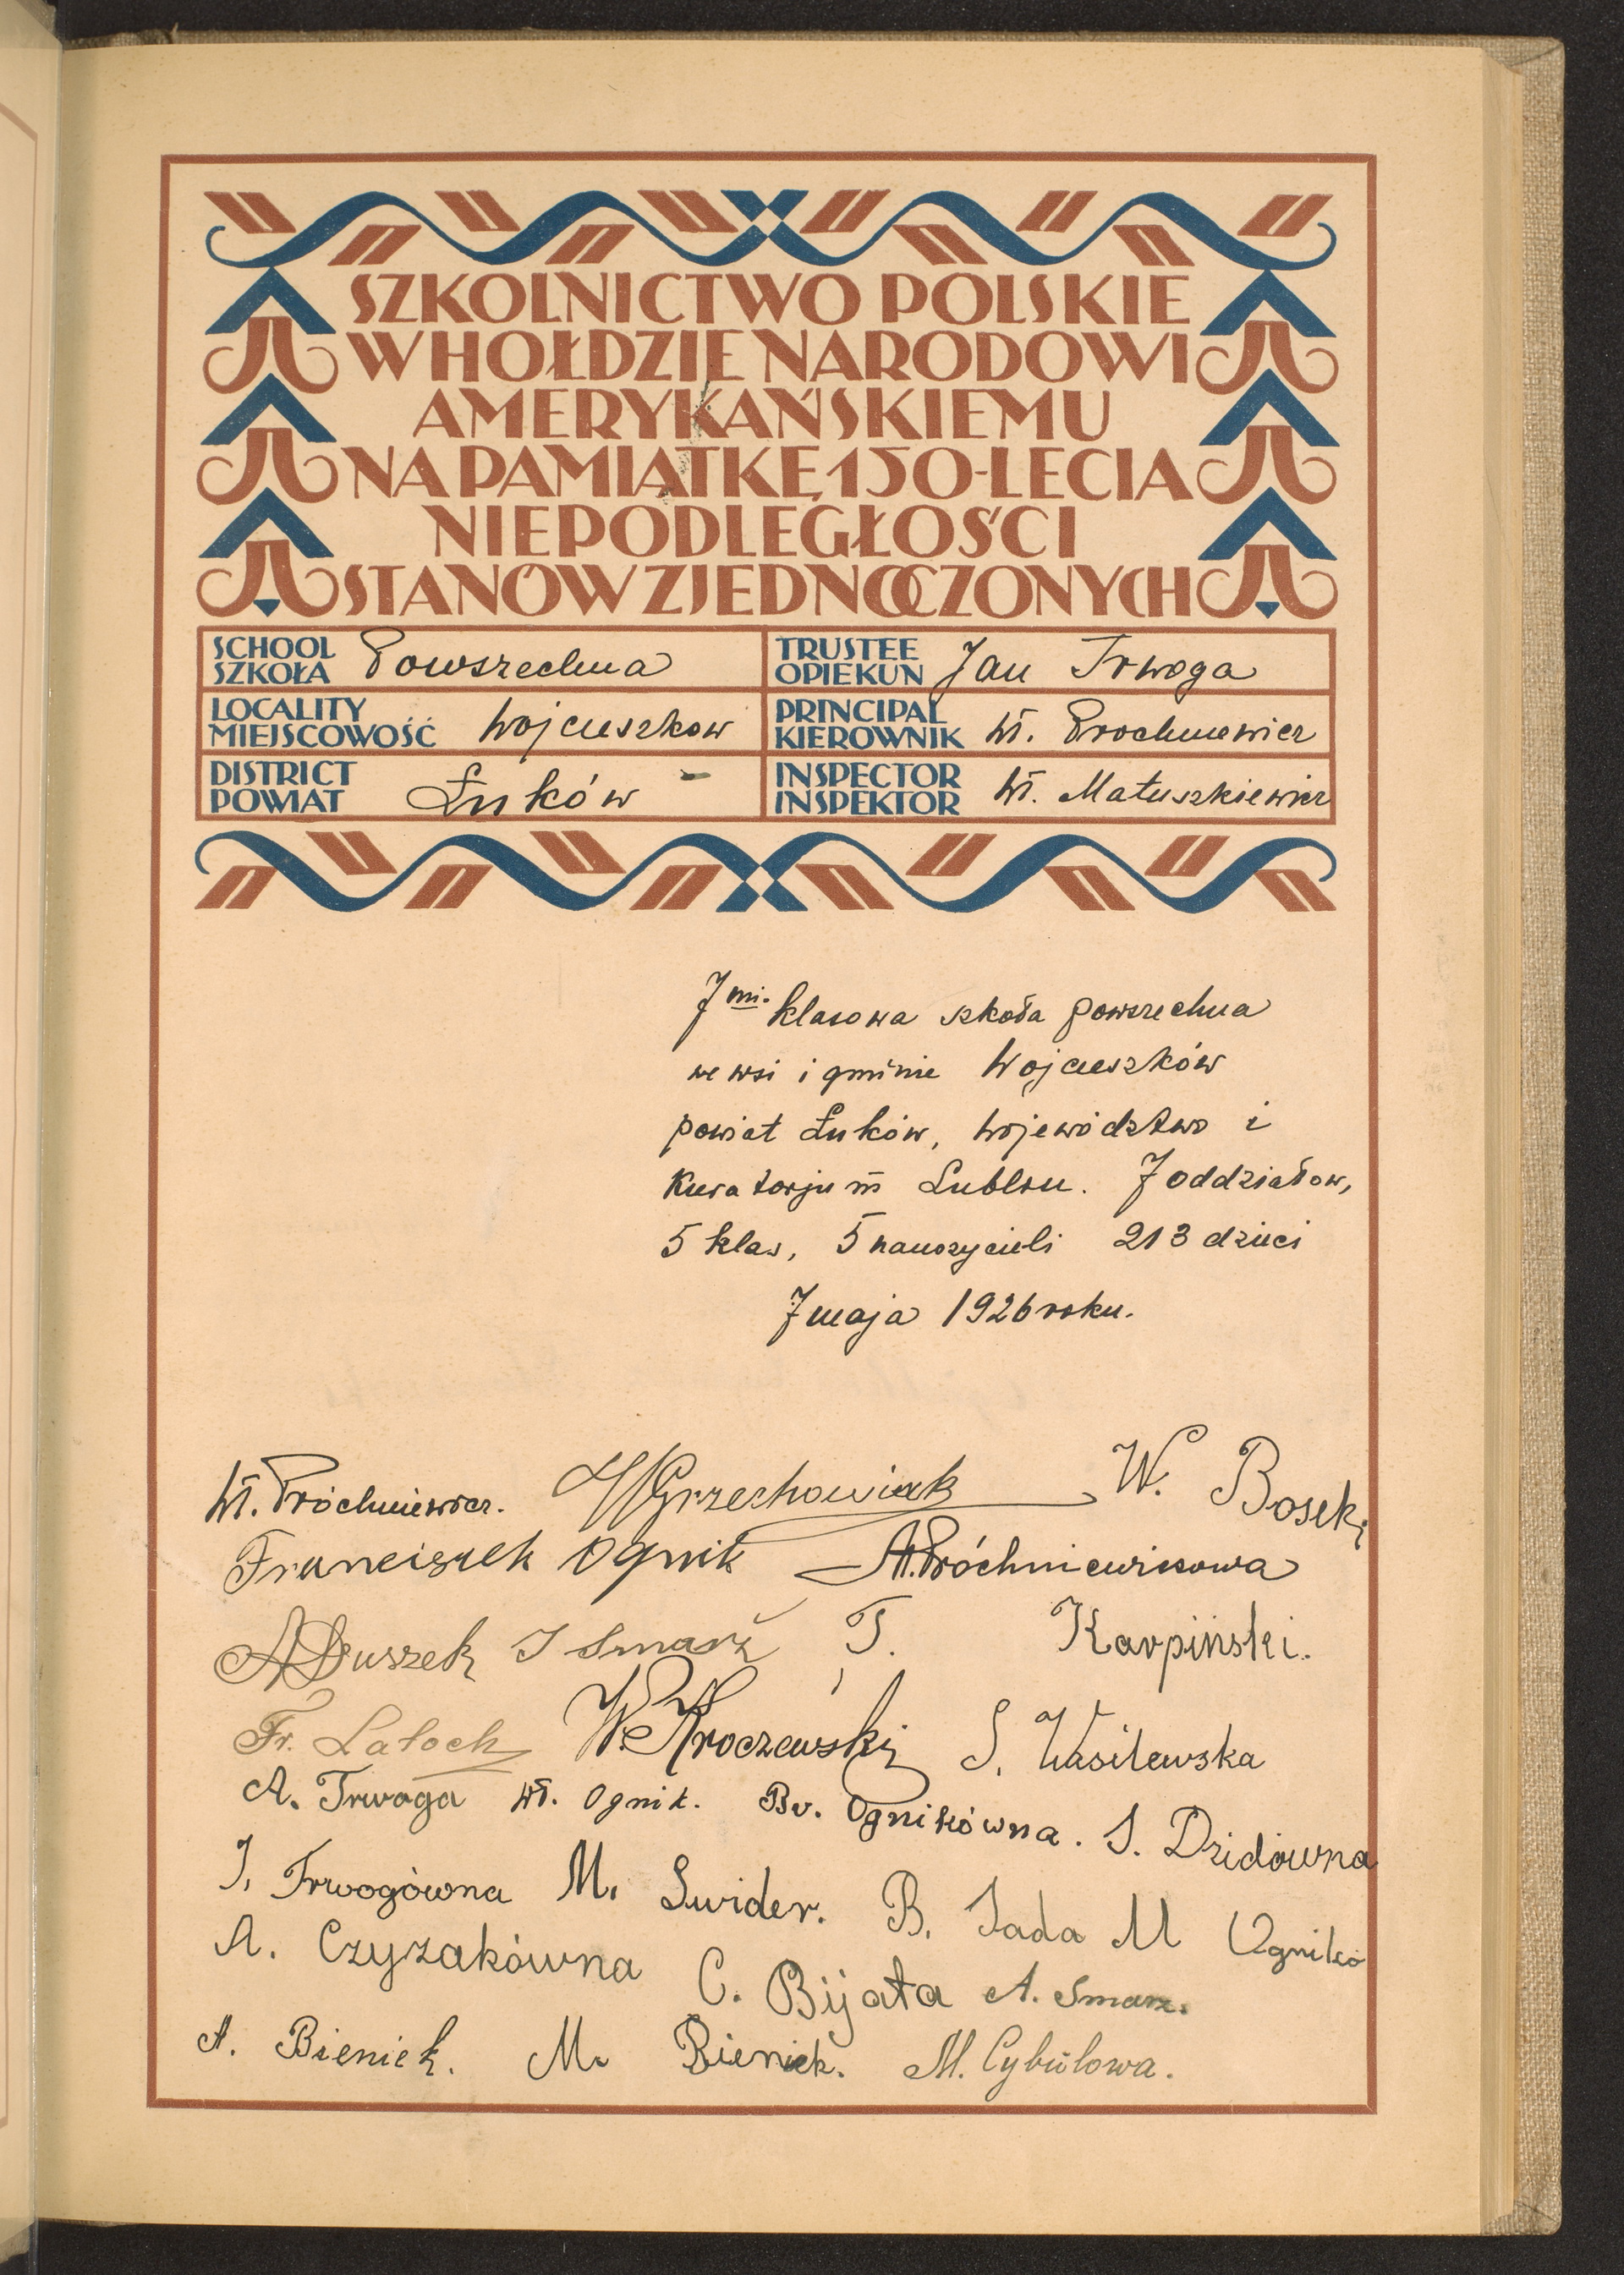 SZKOLNICTWO POLSKIE
W HOŁDZIE NARODOWI
AMERYKAŃSKIEMU
NA PAMIĄTKĘ 150-LECIA
NIEPODLEGŁOŚCI
STANÓW ZJEDNOCZONYCH
SCHOOL SZKOŁA Powszechna
TRUSTEE OPIEKUN Jan Trwoga
LOCALITY MIEJSCOWOŚĆ Wojcieszkow
PRINCIPAL KIEROWNIK Wł. Prochniewicz
DISTRICT POWIAT Łuków
INSPECTOR INSPEKTOR Wł. Matuszkiewicz
7mi. klasowa szkoła powszechna
we wsi i gminie Wojcieszków
powiat Łuków, województwo i
Kuratorjum Lublin. 7 oddziałow,
5 klas, 5 nauczycieli 213 dzieci
7 maja 1926 roku.
Wł. Próchniewicz. W Grzechowiak W. Bosek
Franciszek Ognik A. Próchniewiczowa
A Duszek J Smarż T. Karpiński.
Fr. Latoch W. Kroczewski S. Wasilewska
A. Trwoga Wł. Ognik. Br. Ognikówna. S. Dzidówna
J. Trwogówna M. Swider. B. Sada M Ognikó
A. Czyżakówna C. Bijata A. Smarz.
A. Bieniek. M. Bieniek. M. Cybulowa.